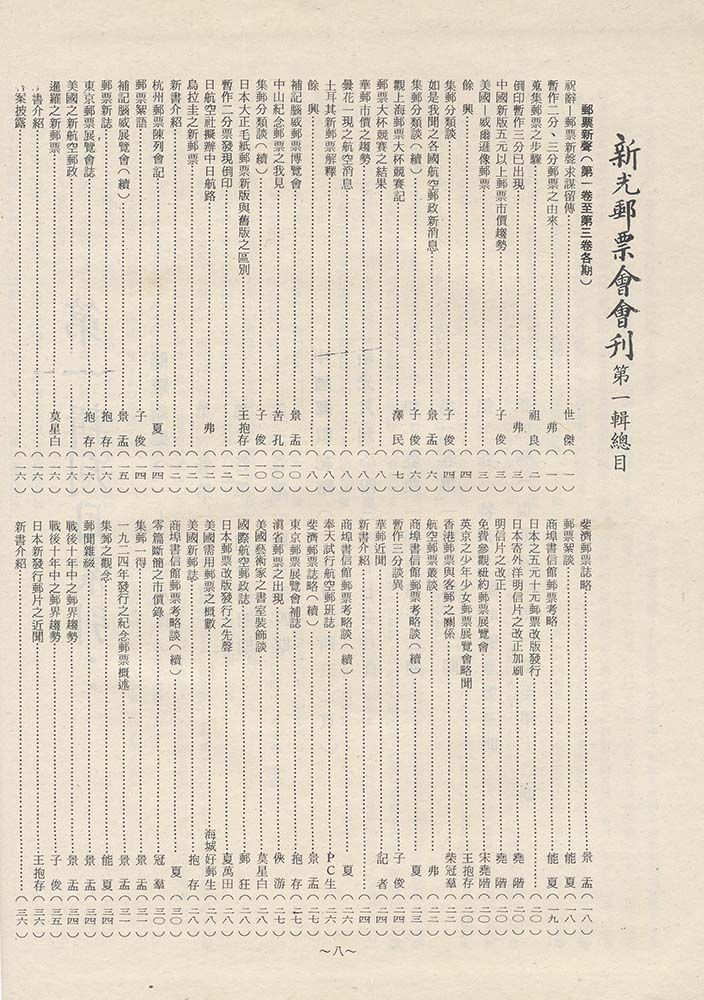 新光郵票會會刊 第一輯總目
郵票新聲（第一卷至第三卷各期）
祝辭—郵票新聲求謀留傳……世傑（一）
暫作二分、三分郵票之由來……弗（一）
蒐集郵票之步驟……祖良（二）
倒印暫作三分已出現……弗（三）
中國新版五元以上郵票市價趨勢……子俊（三）
美國—威爾遜像郵票……（三）
餘興……（四）
集郵分類談……子俊（四）
如是我聞之各國航空郵政新消息……景盂（六）
集郵分類談（續）……子俊（六）
觀上海郵票大杯競賽記……澤民（七）
郵票大杯競賽之結果……（八）
華郵市價之趨勢……（八）
曇花一現之航空消息……（八）
土耳其新郵票解釋……（八）
餘興……（八）
補記腦威郵票博覽會……景盂（一〇）
中山紀念郵票之我見……苦孔（一〇）
集郵分類談（續）……子俊（一〇）
日本大正毛紙郵票新版與舊版之區別……王抱存（一一）
暫作二分票發現倒印……（一二）
日航空社擬辦中日航路……弗（一二）
烏拉圭之新郵票……（一二）
新書介紹……（一二）
杭州郵票陳列會記……夏（一四）
郵票絮語……子俊（一四）
補記腦威展覽會（續）……景盂（一五）
郵票新誌……抱存（一六）
東京郵票展覽會誌……抱存（一六）
美國之新航空郵政……（一六）
暹羅之新郵票……莫星白（一六）
書介紹……（一六）
案披露……（一六）
斐濟郵票誌略……景盂（一八）
郵票絮談……能夏（一八）
商埠書信館郵票考略……能夏（一九）
日本之五元十元郵票改版發行……（二〇）
日本寄外洋明信片之改正加刷……堯階（二〇）
明信片之改正……堯階（二〇）
免費參觀紐約郵票展覽會……宋堯階（二〇）
英京之少年少女郵票展覽會略聞……王抱存（二〇）
香港郵票與客郵之關係……柴冠羣（二一）
航空郵票叢談……弗（二二）
商埠書信館郵票考略談（續）……夏（二三）
暫作三分談異……子俊（二四）
華郵近聞……記者（二四）
新書介紹……（二四）
商埠書信館郵票考略談（續）……夏（二六）
奉天試行航空郵班誌……PC生（二六）
斐濟郵票誌略（續）……景盂（二七）
東京郵票展覽會補誌……抱存（二七）
滇省郵票之出現……俠游（二七）
美國藝術家之書室裝飾談……莫星白（二八）
國際航空郵政誌……郵狂（二八）
日本郵票改版發行之先聲……夏萬田（二八）
美國需用郵票之概數……海城好郵生（二八）
美國新郵誌……抱存（二八）
商埠書信館郵票考略談（續）……夏（三〇）
零篇斷簡之市價錄……冠羣（三〇）
集郵一得……景盂（三一）
一九二四年發行之紀念郵票概述……景盂（三一）
集郵之觀念……能夏（三四）
郵聞雜綴……景盂（三四）
戰後十年中之郵界趨勢……景盂（三四）
戰後十年中之郵界趨勢……子俊（三五）
日本新發行郵片之近聞……王抱存（三六）
新書介紹……（三六）
～八～